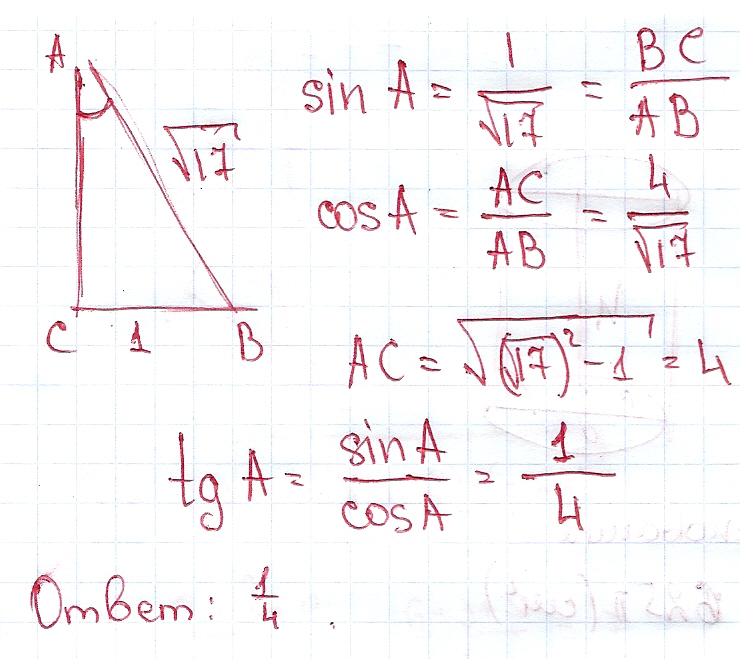 A
√17
C 1 B
sin A = 1/√17 = BC/AB
cos A = AC/AB = 4/√17
AC = √((√17)² - 1) = 4
tg A = sin A/cos A = 1/4
Ответ: 1/4.